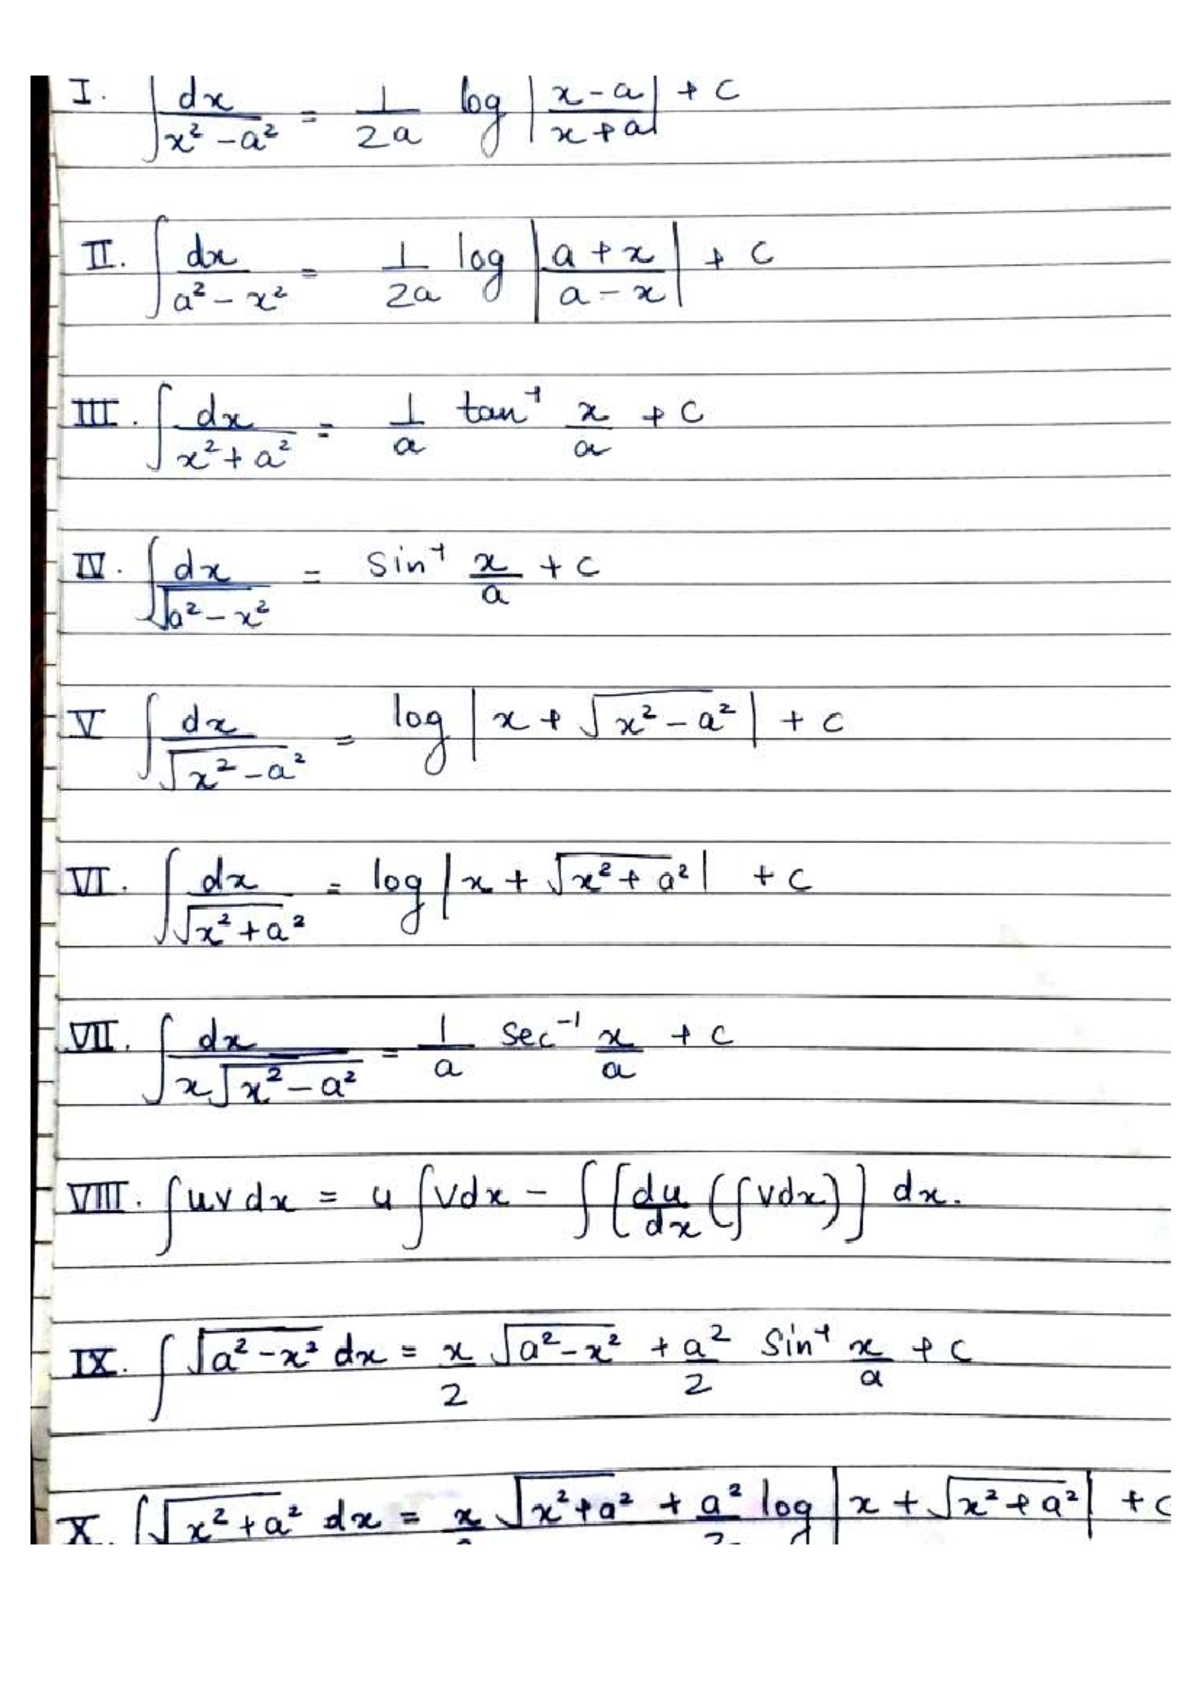 I. ∫ dx/(x² - a²) = 1/2a log |(x - a)/(x + a)| + c
II. ∫ dx/(a² - x²) = 1/2a log |(a + x)/(a - x)| + c
III. ∫ dx/(x² + a²) = 1/a tan⁻¹ x/a + c
IV. ∫ dx/√(a² - x²) = sin⁻¹ x/a + c
V ∫ dx/√(x² - a²) = log |x + √(x² - a²)| + c
VI. ∫ dx/√(x² + a²) = log |x + √(x² + a²)| + c
VII. ∫ dx/(x√(x² - a²)) = 1/a sec⁻¹ x/a + c
VIII. ∫uv dx = u ∫vdx - ∫ [du/dx (∫vdx)] dx.
IX. ∫ √(a² - x²) dx = x/2 √(a² - x²) + a²/2 sin⁻¹ x/a + c
X. ∫√(x² + a²) dx = x/2 √(x² + a²) + a²/2 log |x + √(x² + a²)| + c